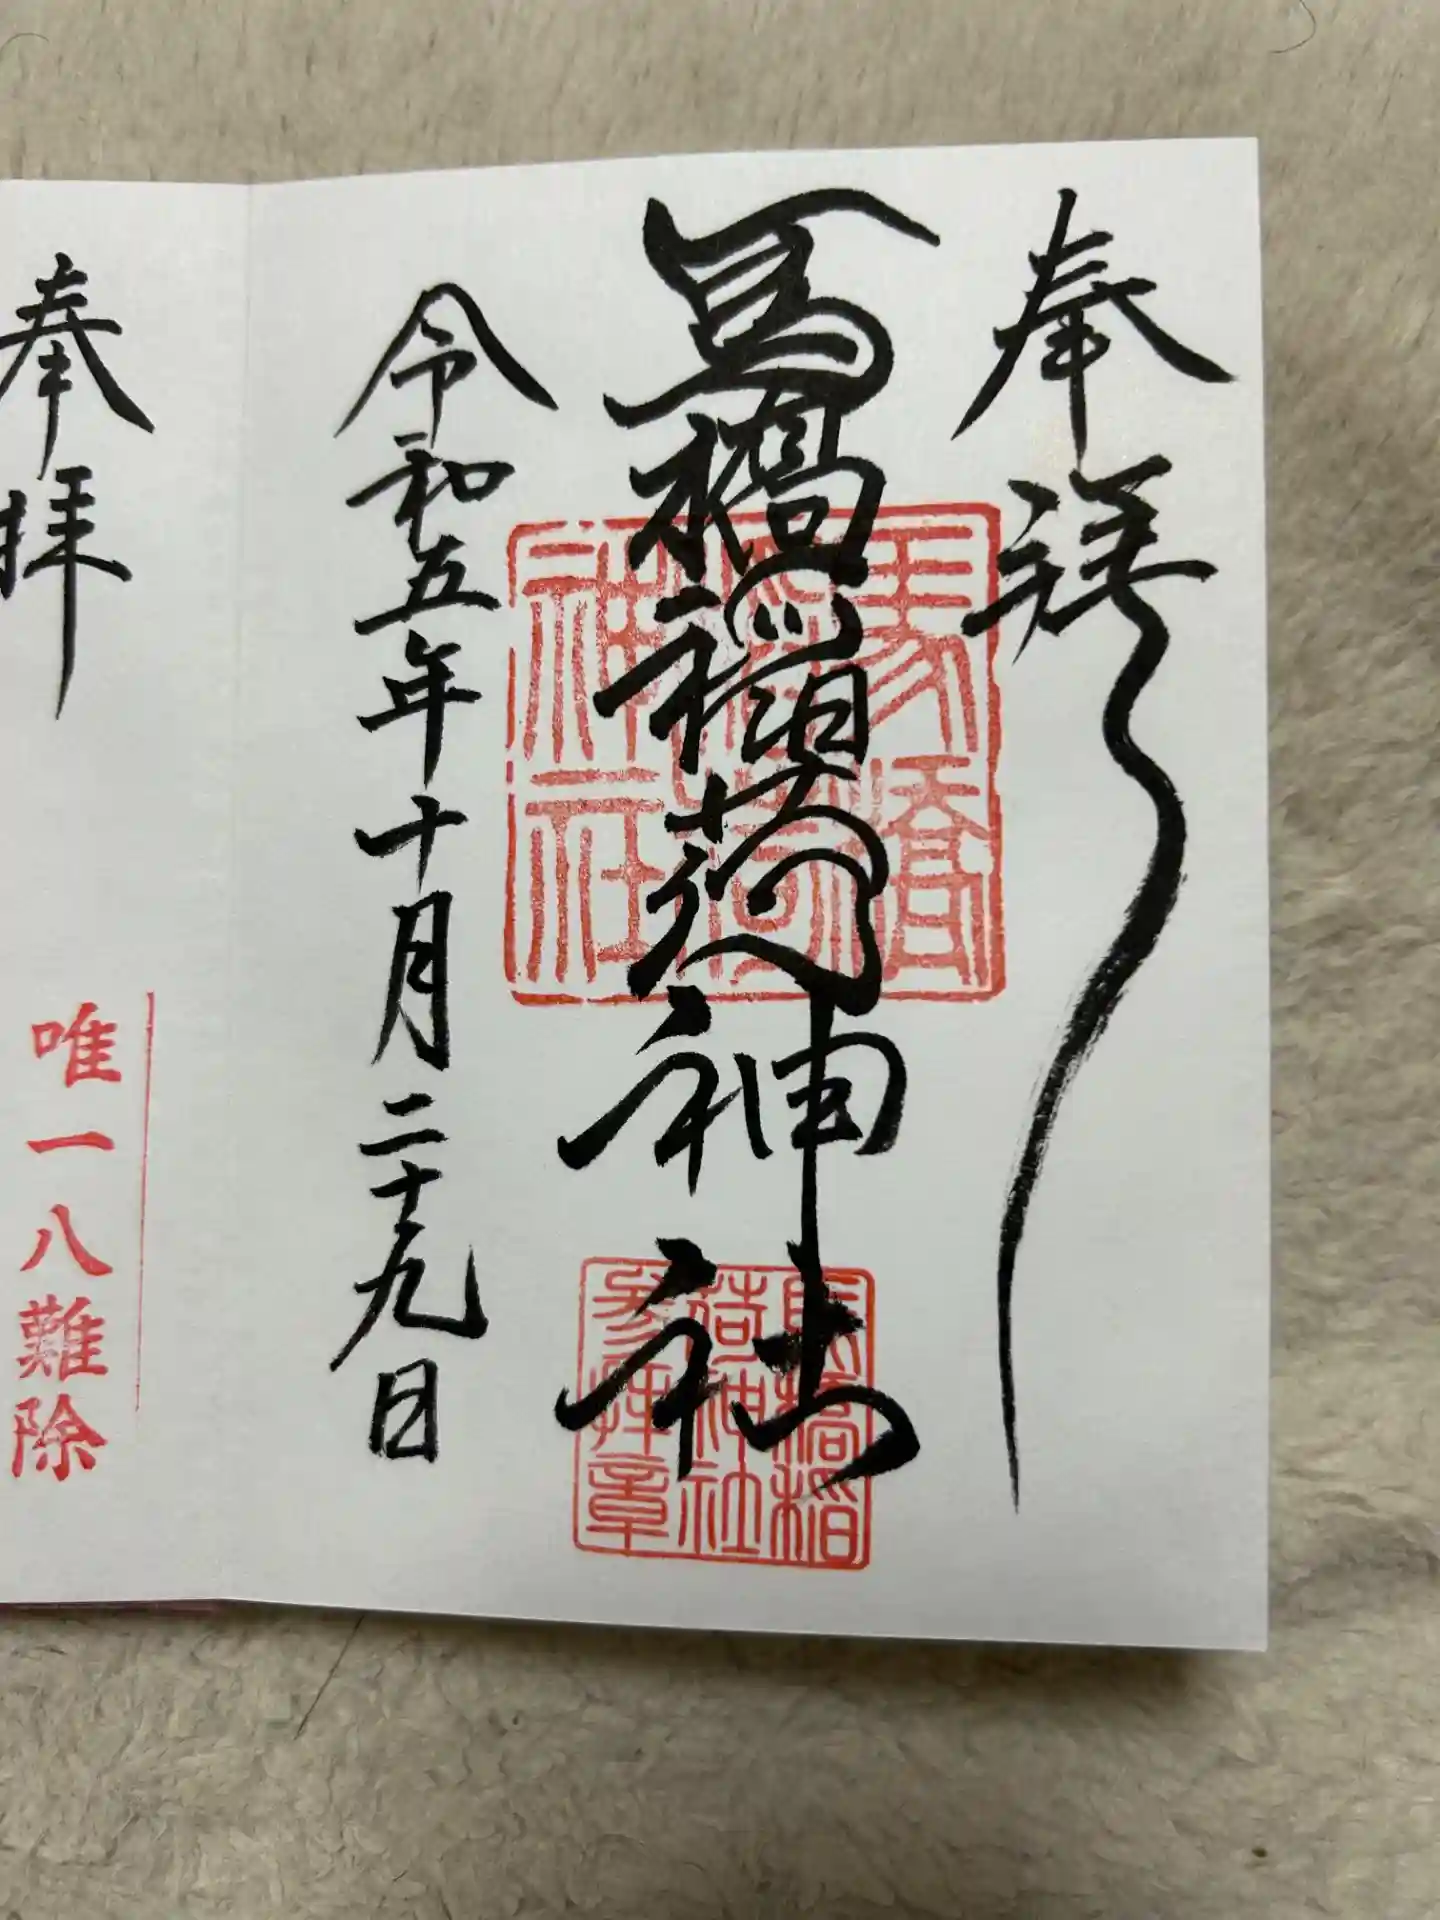 奉拝
馬橋稲荷神社
馬橋
稲荷
神社
馬橋稲
荷神社
参拝章
令和五年十月二十九日
奉拝
唯一八難除